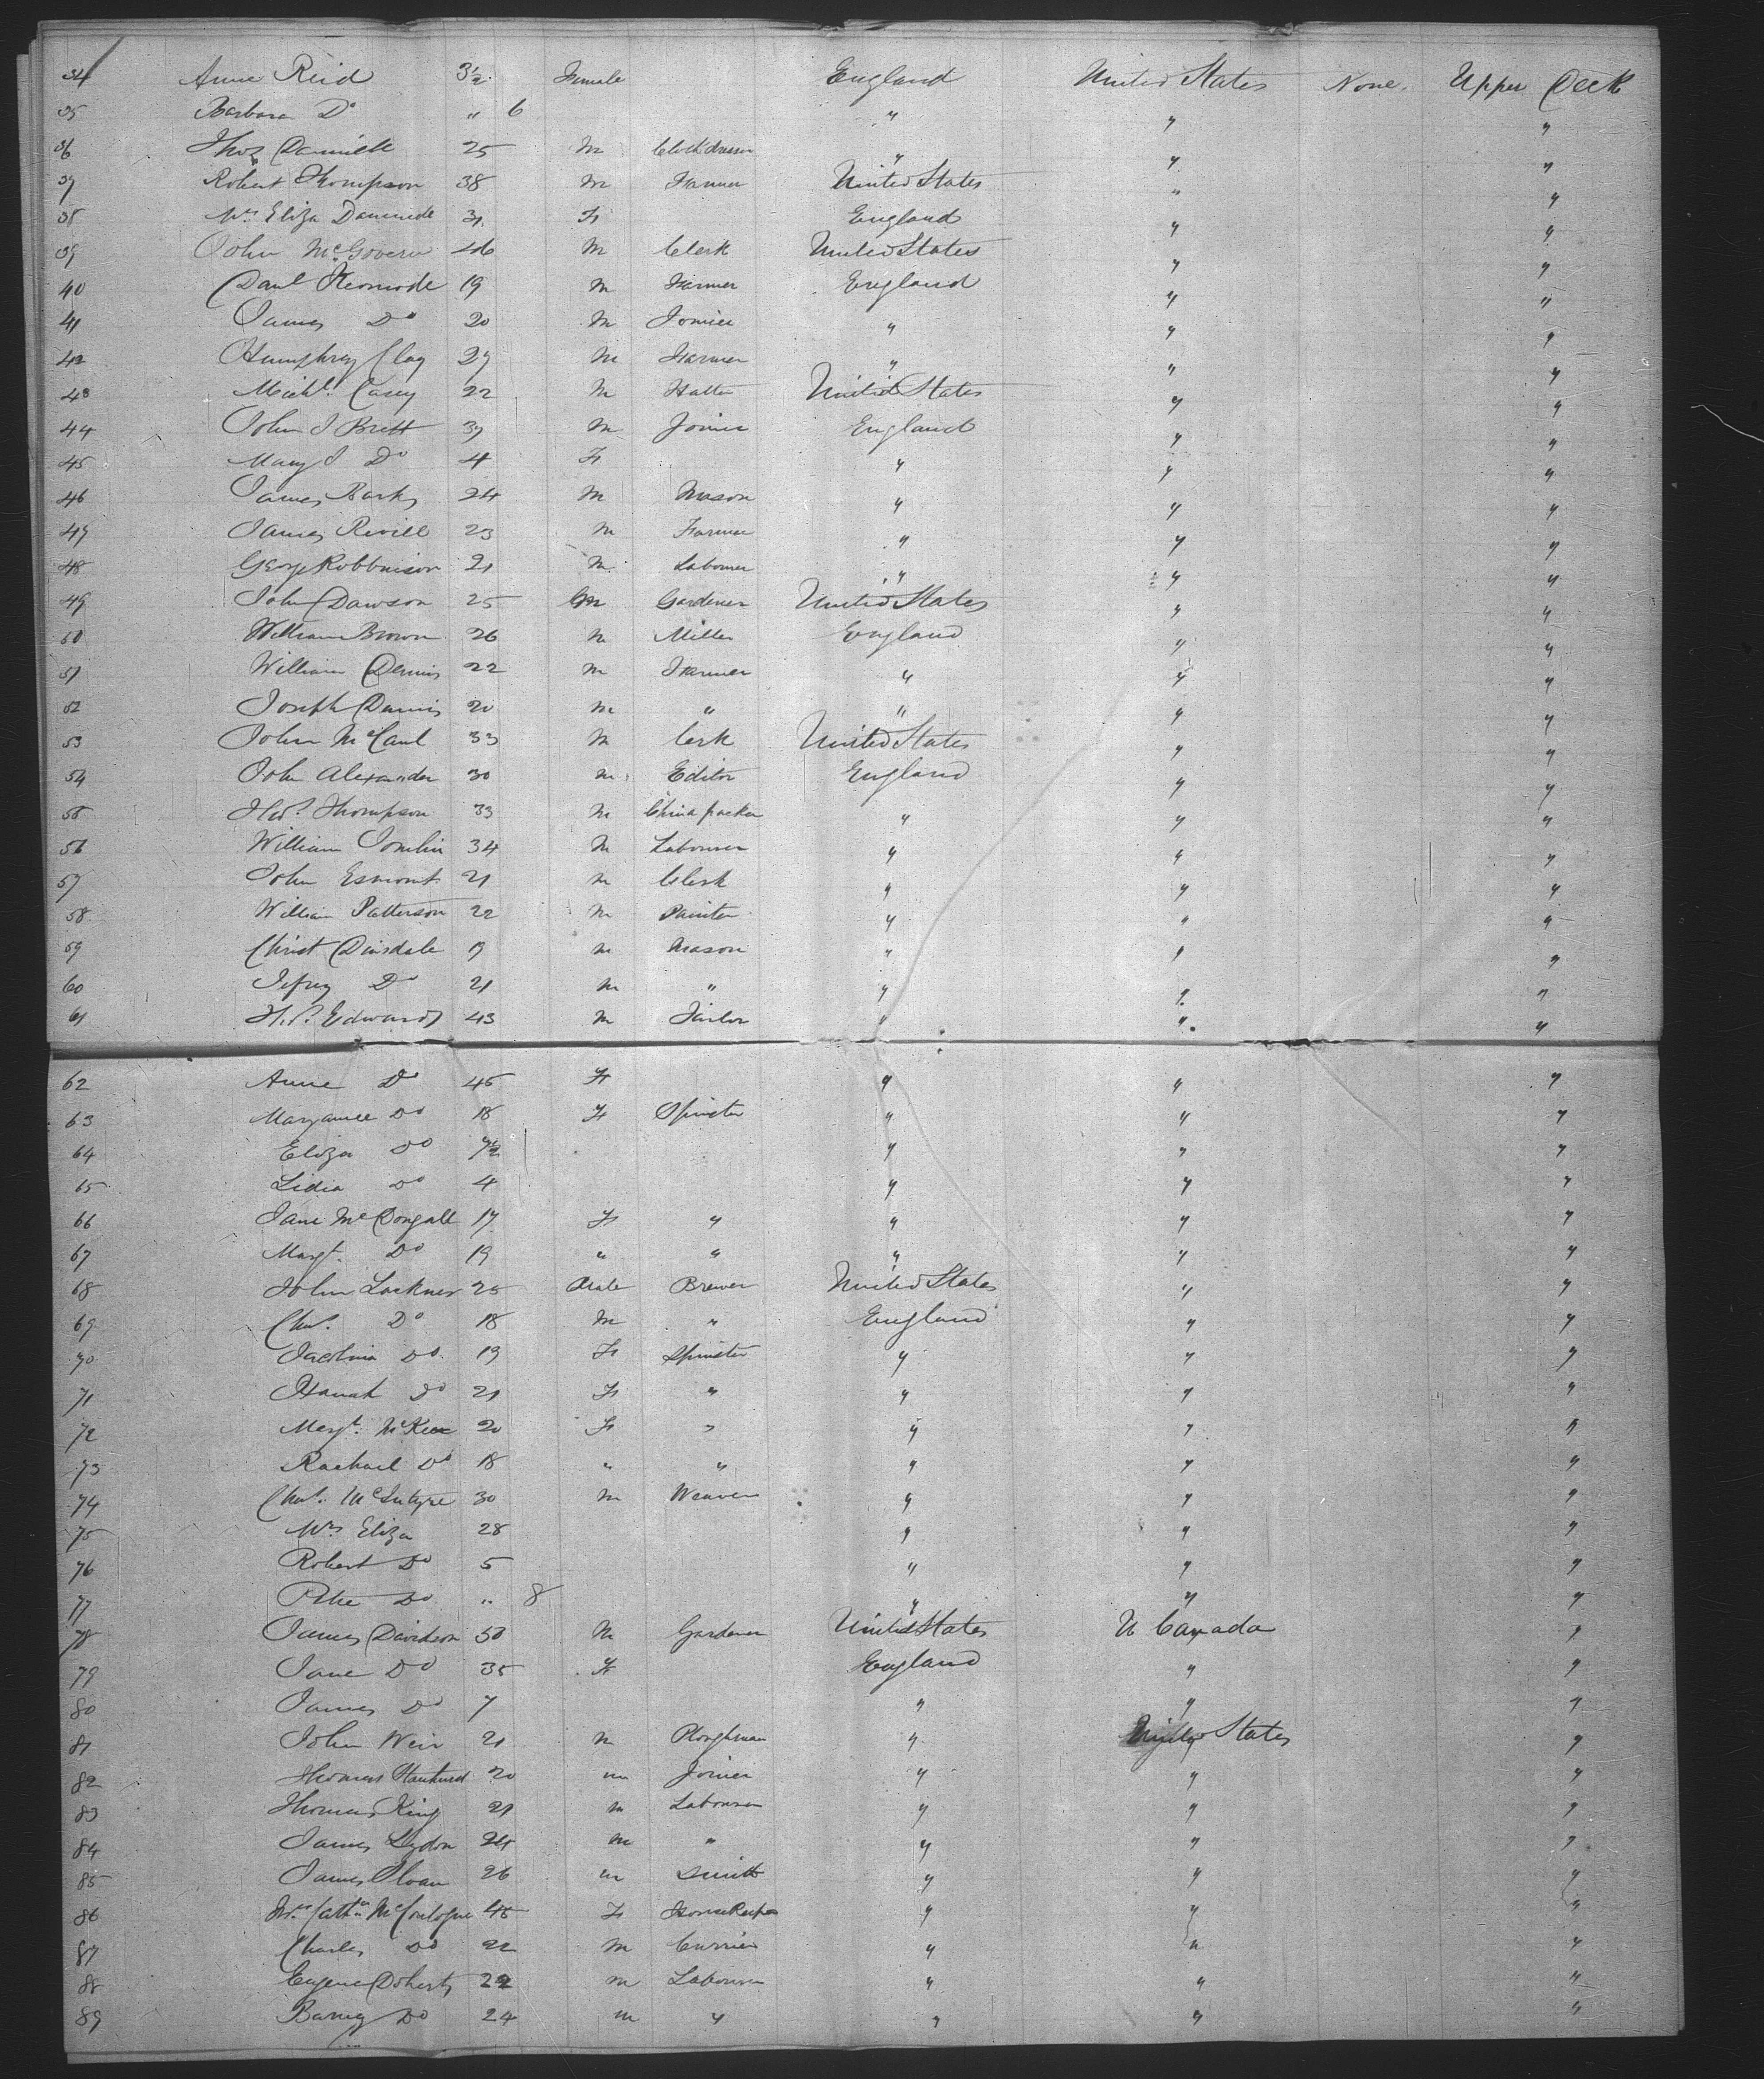 34 Anne Reid 3½ Female England United States None. Upper Deck
35 Barbara Do " 6 " " "
36 Thos 25 M Clothdresser " " "
37 Robert Thompson 38 M Farmer United States " "
38 Mrs Eliza 31 F England " "
39 John McGovern 46 M Clerk United States " "
40 Danl Kermode 19 M Farmer England " "
41 James Do 20 M Joiner " " "
42 Humphrey Clag 29 M Farmer " " "
43 Michl. Casey 22 M Hatter United States " "
44 John J Brett 39 M Joiner England " "
45 Mary J Do 4 F " " "
46 James Barks 24 M Mason " " "
47 James Revill 23 M Farmer " " "
48 George Robbinson 21 M Labourer " " "
49 John Dawson 25 M Gardener United States " "
50 William Brown 26 M Miller England " "
51 William Dennis 22 M Farmer " " "
52 Joseph Dannis 20 M " " " "
53 John McCaul 33 M Clerk United States " "
54 John Alexander 30 M Editor England " "
55 Thos. Thompson 33 M China packer " " "
56 William Tomlin 34 M Labourer " " "
57 John Esmont 21 M Clerk " " "
58 William Patterson 22 M Painter " " "
59 Christ Dinsdale 19 M Mason " " "
60 Jefrey Do 21 M " " " "
61 Thos. Edwards 43 M Tailor " " "
62 Anne Do 45 F " " "
63 Maryanne Do 18 F Spinster " " "
64 Eliza Do 7½ " " "
65 Lidia Do 4 " " "
66 Jane McDongall 17 F " " " "
67 Margt. Do 19 " " " " "
68 John Lockner 25 Male Brewer United States " "
69 Chas. Do 18 M " England " "
70 Do 19 F Spinster " " "
71 Hanah Do 21 F " " " "
72 Margt. McKee 20 F " " " "
73 Rachael Do 18 " " " " "
74 Chas. McIntyre 30 M Weaver " " "
75 Mrs Eliza 28 " " "
76 Robert Do 5 " " "
77 Do " 8 " " "
78 James Davidson 50 M Gardener United States U Canada "
79 Jane Do 35 F England " "
80 James Do 7 " " "
81 John Weir 21 M Ploughman " United States "
82 Thomas 20 M Joiner " " "
83 Thomas King 21 M Labourer " " "
84 James Lydon 24 M " " " "
85 James Sloan 26 M Smith " " "
86 Mrs Cathn. 45 F HouseKeeper " " "
87 Charles Do 22 M Currier " " "
88 Eugene Doherty 22 M Labourer " " "
89 Barney Do 24 M " " " "